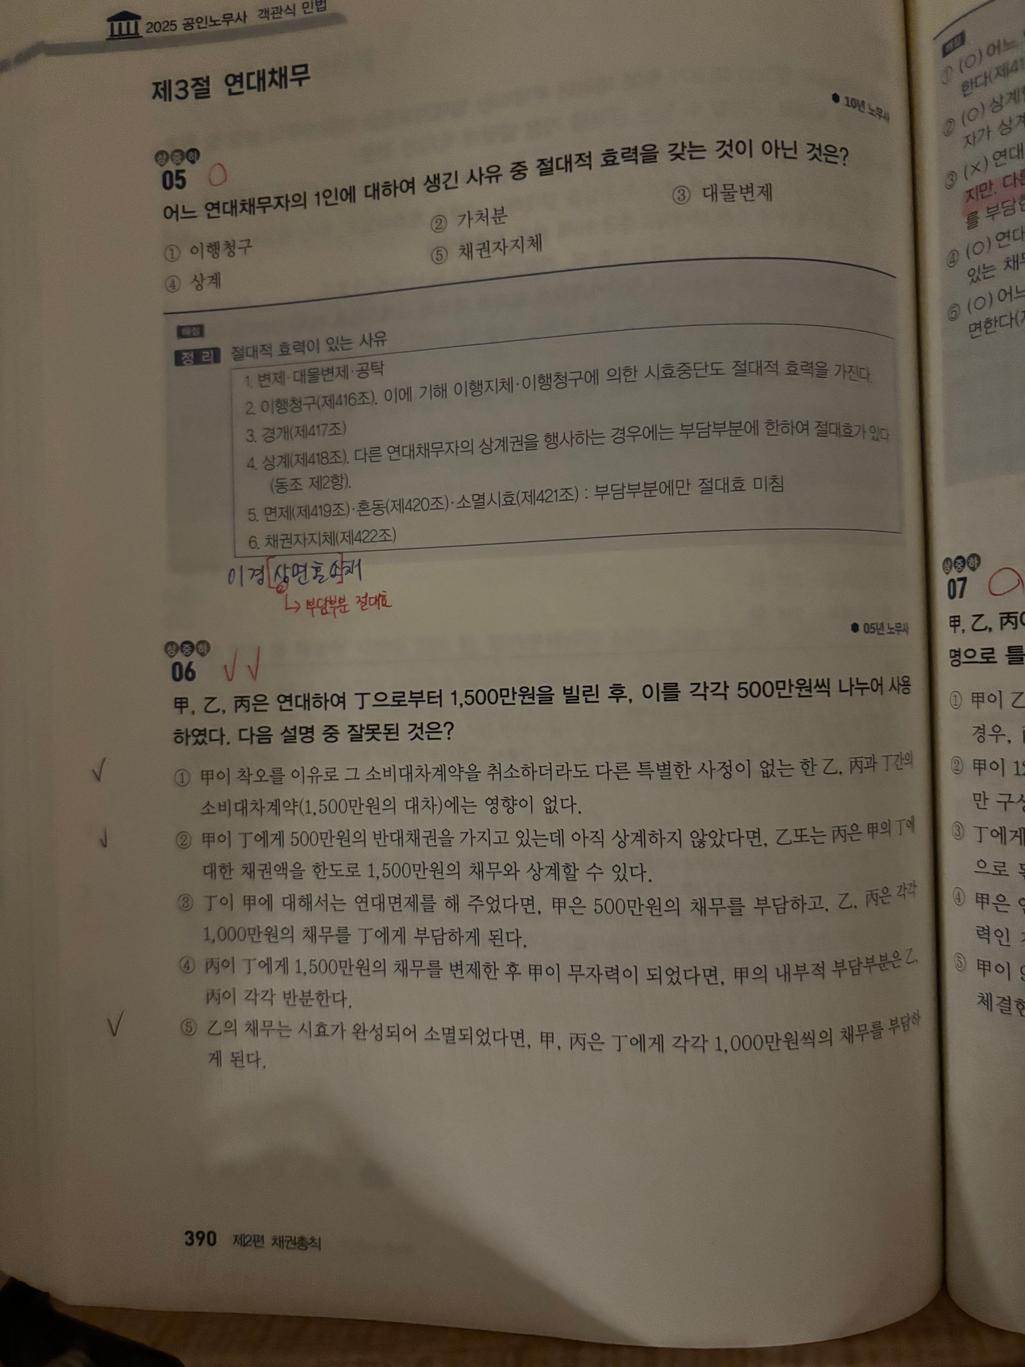 2025 공인노무사 객관식 민법
제3절 연대채무
● 10년 노무사
상중하
05
어느 연대채무자의 1인에 대하여 생긴 사유 중 절대적 효력을 갖는 것이 아닌 것은?
① 이행청구 ② 가처분 ③ 대물변제
④ 상계 ⑤ 채권자지체
해설
정리 절대적 효력이 있는 사유
1. 변제·대물변제·공탁
2. 이행청구(제416조). 이에 기해 이행지체·이행청구에 의한 시효중단도 절대적 효력을 가진다.
3. 경개(제417조)
4. 상계(제418조). 다른 연대채무자의 상계권을 행사하는 경우에는 부담부분에 한하여 절대효가 있다
(동조 제2항).
5. 면제(제419조)·혼동(제420조)·소멸시효(제421조) : 부담부분에만 절대효 미침
6. 채권자지체(제422조)
이경[상면혼소]채
↳ 부담부분 절대효
● 05년 노무사
상중하
06
甲, 乙, 丙은 연대하여 丁으로부터 1,500만원을 빌린 후, 이를 각각 500만원씩 나누어 사용
하였다. 다음 설명 중 잘못된 것은?
① 甲이 착오를 이유로 그 소비대차계약을 취소하더라도 다른 특별한 사정이 없는 한 乙, 丙과 丁간의
소비대차계약(1,500만원의 대차)에는 영향이 없다.
② 甲이 丁에게 500만원의 반대채권을 가지고 있는데 아직 상계하지 않았다면, 乙또는 丙은 甲의 丁에
대한 채권액을 한도로 1,500만원의 채무와 상계할 수 있다.
③ 丁이 甲에 대해서는 연대면제를 해 주었다면, 甲은 500만원의 채무를 부담하고, 乙, 丙은 각각
1,000만원의 채무를 丁에게 부담하게 된다.
④ 丙이 丁에게 1,500만원의 채무를 변제한 후 甲이 무자력이 되었다면, 甲의 내부적 부담부분은 乙,
丙이 각각 반분한다.
⑤ 乙의 채무는 시효가 완성되어 소멸되었다면, 甲, 丙은 丁에게 각각 1,000만원씩의 채무를 부담하
게 된다.
390 제2편 채권총칙
해설
① (○) 어느
한다(제41
② (○) 상계
자가 상계
③ (×) 연대
지만, 다른
를 부담한
④ (○) 연대
있는 채무
⑤ (○) 어느
면한다(
상중하
07
甲, 乙, 丙
명으로 틀
① 甲이 乙
경우,
② 甲이
만 구상
③ 丁에게
으로
④ 甲은
력인
⑤ 甲이
체결한